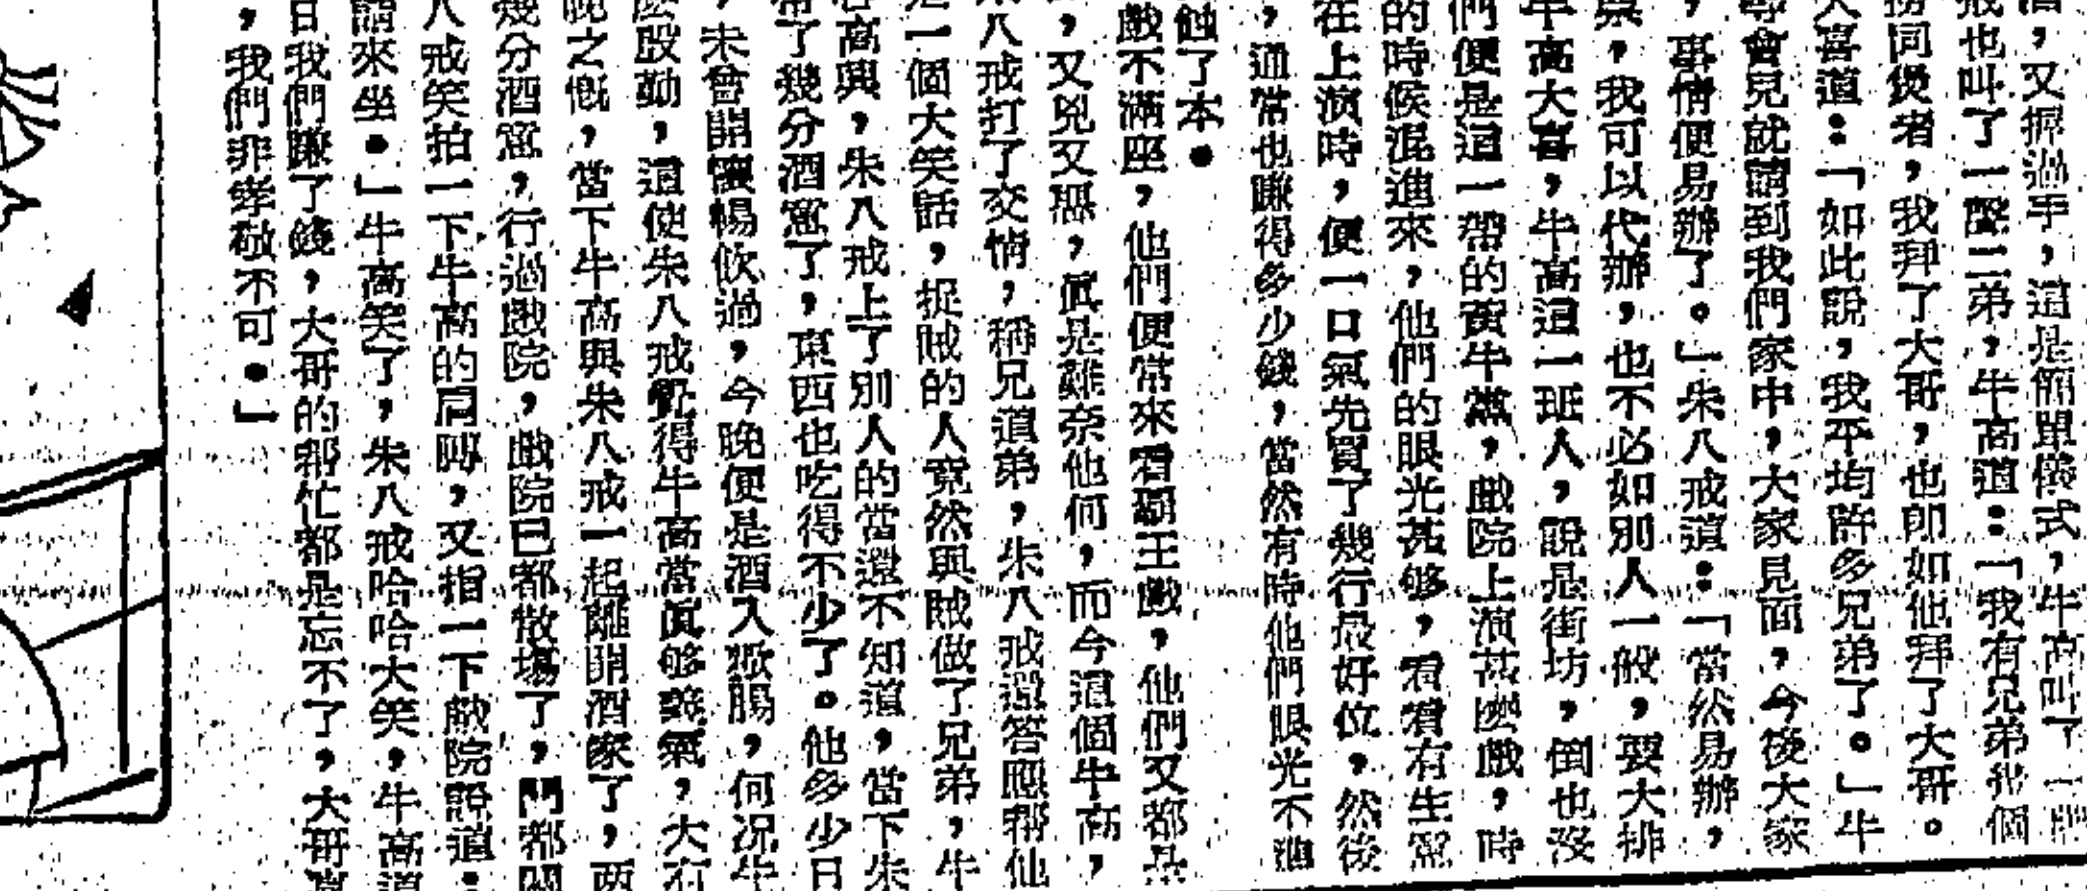 ，又握過手，這是個單儀式，牛高叫了一聲
戒也叫了一聲二弟，牛高道：「我有兄弟幾個
同煲者，我拜了大哥，也即如他拜了大哥。
大喜道：「如此說，我平均許多兄弟了。」牛
會見就請到我們家中，大家見面，今後大家
，事情便易辦了。」朱八戒道：「當然易辦，
票，我可以代辦，也不必如別人一般，要大排
牛高大喜，牛高這一班人，說是街坊，倒也沒
們便是這一帶的黃牛黨，戲院上演甚麽戲，時
的時候混進來，他們的眼光甚够，看看有生意
在上演時，便一口氣先買了幾行最好位，然後
，通常也賺得多少錢，當然有時他們眼光不準
蝕了本。
戲不滿座，他們便常來看霸王戲，他們又都是
，又兇又惡，眞是難奈他何，而今這個牛高，
朱八戒打了交情，稱兄道弟，朱八戒還答應帮他
是一個大笑話，捉賊的人竟然與賊做了兄弟，牛
高興，朱八戒上了別人的當還不知道，當下朱
帶了幾分酒意了，東西也吃得不少了。他多少日
，未曾開懷暢飲過，今晚便是酒入歡腸，何况牛
麽殷勤，這使朱八戒覺得牛高當眞够義氣，大有
晚之慨，當下牛高與朱八戒一起離開酒家了，兩
幾分酒意，行過戲院，戲院已都散塲了，門都關
八戒笑拍一下牛高的肩膊，又指一下戲院說道：
請來坐。」牛高笑了，朱八戒哈哈大笑，牛高道
日我們賺了錢，大哥的帮忙都是忘不了，大哥
，我們非孝敬不可。」